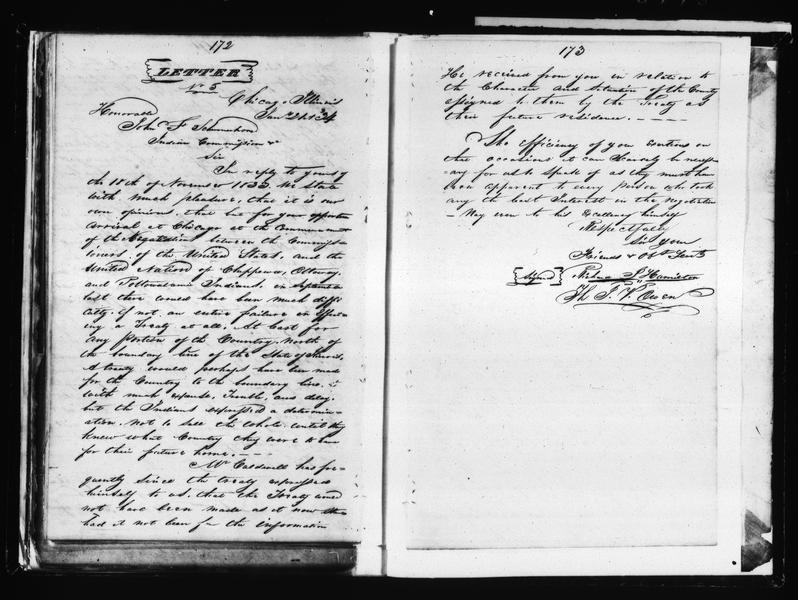 172
LETTER
No 5
Chicago Illinois
Jany 21st 34
Honorable
John F Schermerhorn
Indian Commissioner &c
Sir
In reply to yours of
the 18th of November 1833. We State
with much pleasure, that it is our
own opinions, that but for your opportune
arrival at Chicago at the Commencement
of the Negotiation between the Commiss-
ioners of the United States, and the
United Nation of Chippewa, Ottaway,
and Pottowatamie Indians, in September
last there would have been much diffi
culty, if not an entire failure in effect-
ing a Treaty at all, At least for
any portion of the Country, North of
the boundary line of the State of Illinois,
A treaty would perhaps have been made
for the Country to the boundary line,
with much expense, Trouble, and delay,
but the Indians expressed a determin-
ation, Not to sell the whole until they
knew what Country they were to have
for their future home. - - -
Mr Caldwell has fre-
quently since the treaty expressed
himself to us, that the Treaty would
not have been made as it now
had it not been for the information
173
He received from you in relation to
the Character and Situation of the Country
assigned to them by the Treaty as
their future residence. - - - -
The efficiency of your exertions on
that occasion it can Scarcely be necess-
ary for us to Speak of as they must have
been apparent to every person who took
any the least Interest in the negotiation
- May even to his Excellency himself
Respectfully
Sir your
Friends & Obt Servts
Signed Richard J. Hamilton
Th. J. V. Owen